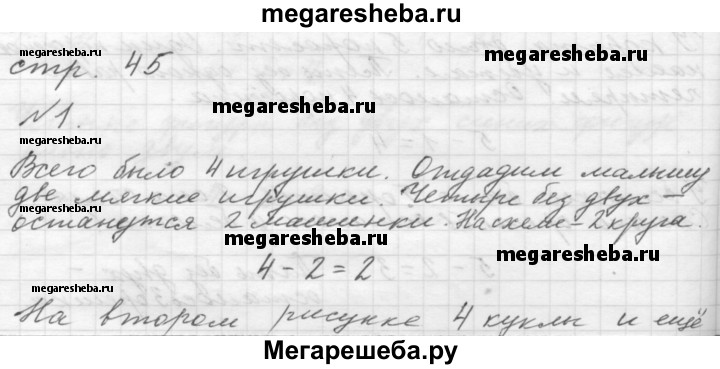 megaresheba.ru
стр. 45
megaresheba.ru
megaresheba.ru
megaresheba.ru
№1.
Всего было 4 игрушки. Отдадим малышу
megaresheba.ru
две мягкие игрушки. Четыре без двух –
megaresheba.ru
останутся 2 машинки. На схеме – 2 круга.
megaresheba.ru
megaresheba.ru
4 - 2 = 2
megaresheba.ru
На втором рисунке 4 куклы и ещё
Мегарешеба.ру